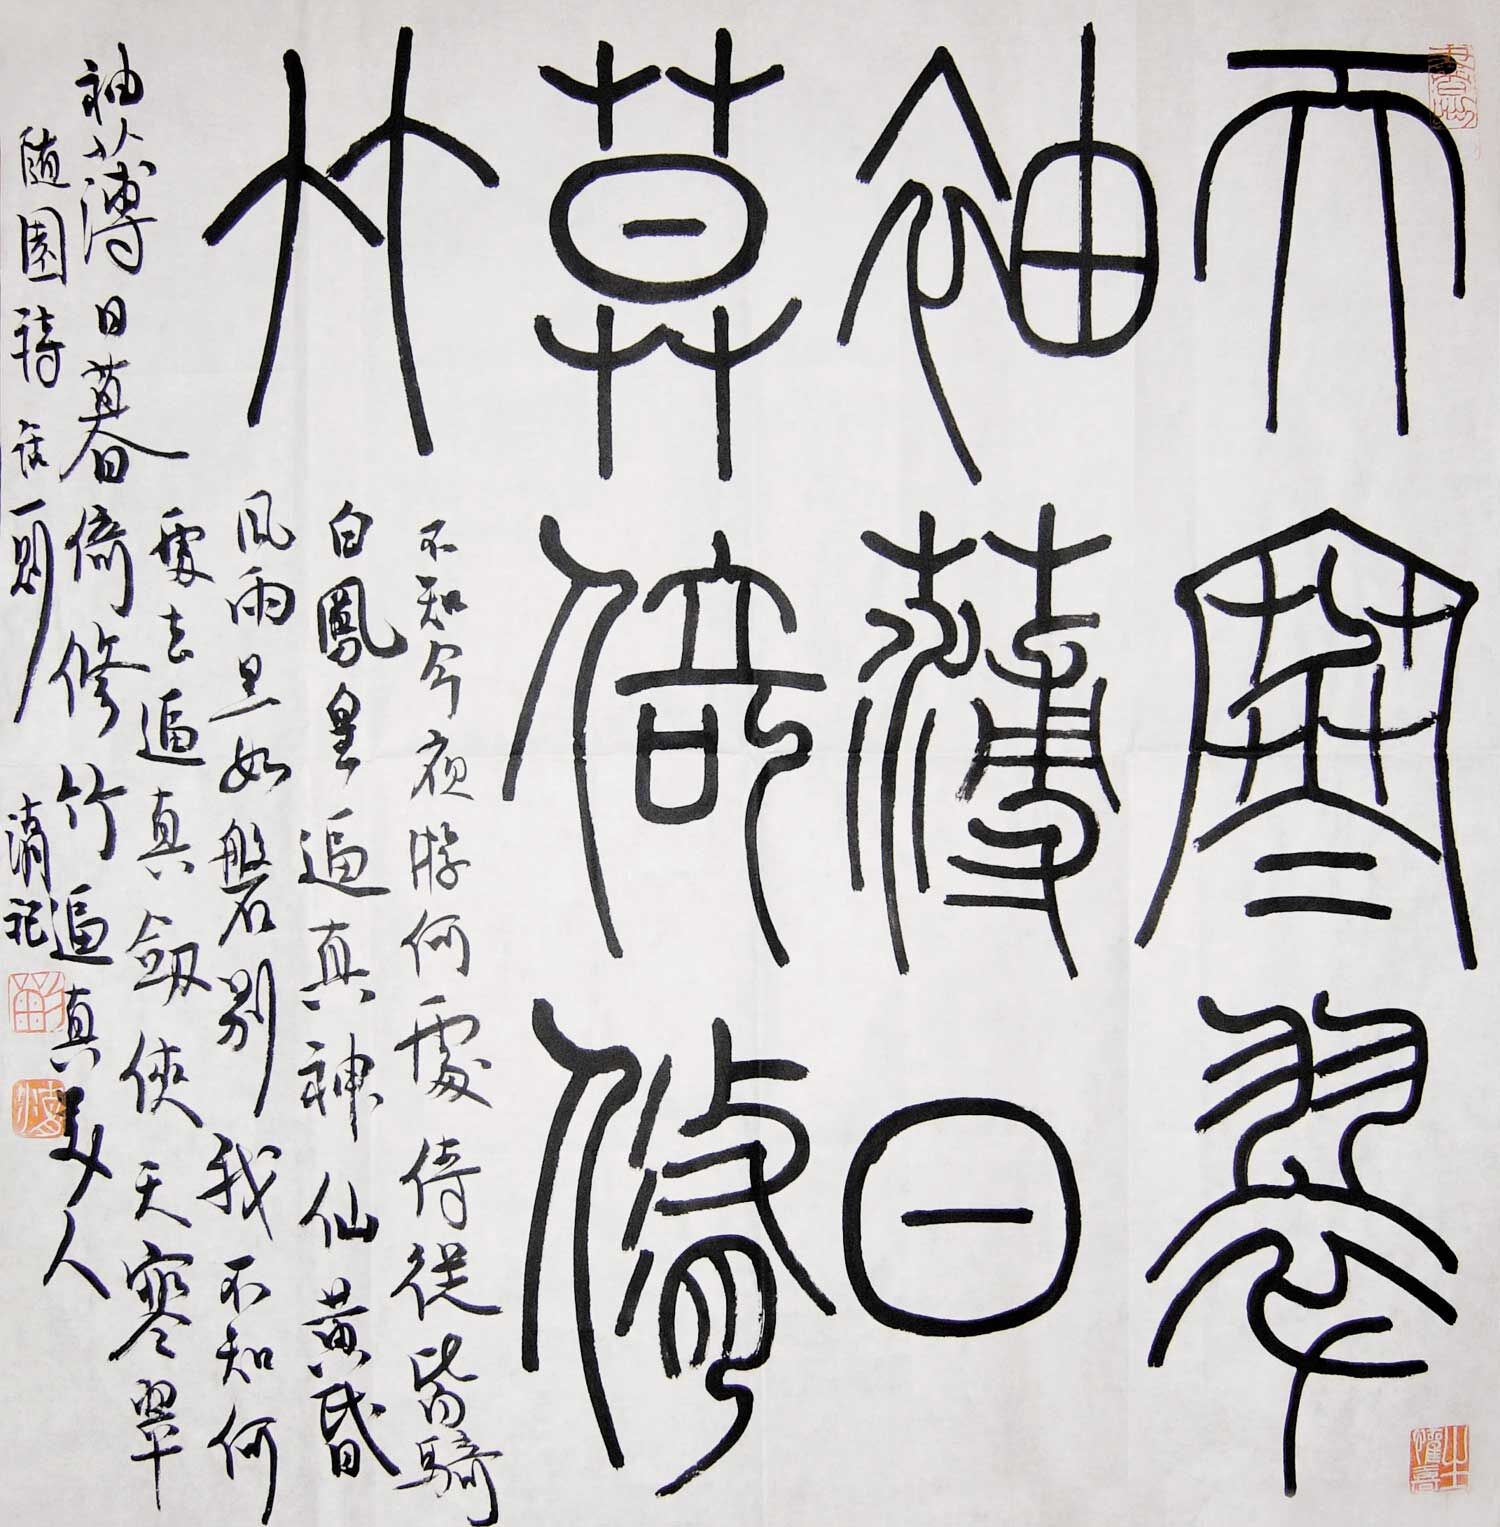 天寒翠
袖薄日
莫倚修
竹
不知今夜游何處侍從皆騎
白鳳皇逼真神仙黄昏
風雨黑如磐別我不知何
處去逼真劍俠天寒翠
袖薄日暮倚修竹逼真美人
隨園詩話一則 記